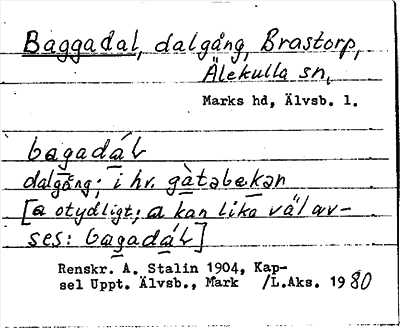 Baggadal, dalgång, Brastorp,
Älekulla sn,
Marks hd, Älvsb. l.
bagadál
dalgång; i hr. gàtabækan
[a otydligt; a kan lika väl av-
ses: bagadál]
Renskr. A. Stalin 1904, Kap-
sel Uppt. Älvsb., Mark /L.Aks. 1980